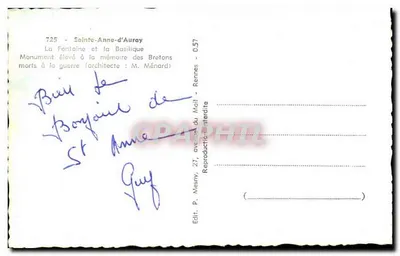 725 - Sainte-Anne-d'Auray
La Fontaine et la Basilique
Monument élevé à la mémoire des Bretons
morts à la guerre (architecte : M. Ménard)
Bien le
Bonjour de
St Anne
Guy
Edit. P. Mesny, 27, avenue du Mail - Rennes - 0.57
Reproduction interdite
CARTAPHILIE